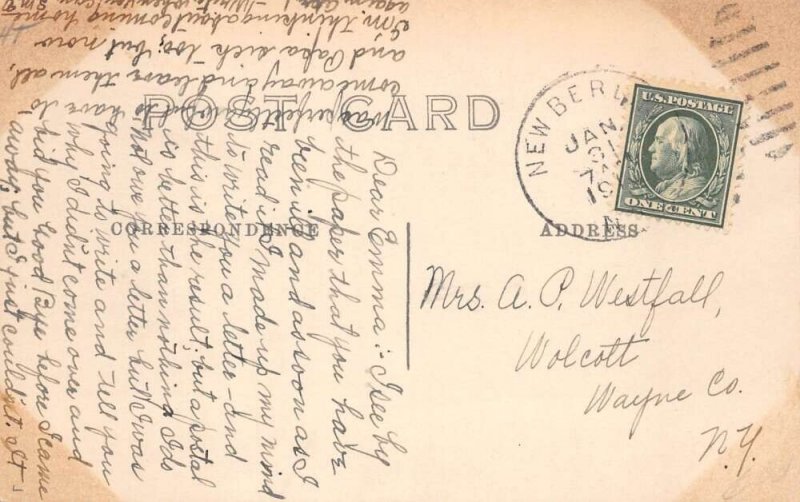 POST CARD
CORRESPONDENCE
ADDRESS
NEW BERL
JAN
31
7 A
19
N
U.S. POSTAGE
ONE CENT
Mrs. A. P. Westfall,
Wolcott
Wayne Co.
N.Y.
Dear Emma:- I see by
the paper that you have
been ill and as soon as I
read it I made up my mind
to write you a letter - and
this is the result; but a postal
is better than nothing. I do
not owe you a letter but I was
going to write and tell you
why I didn't come over and
bid you Good Bye before I came
away, but I just couldn't. It
was perfectly
have to
come away and leave them all,
and Papa sick too; but now
I'm thinking about coming home
again